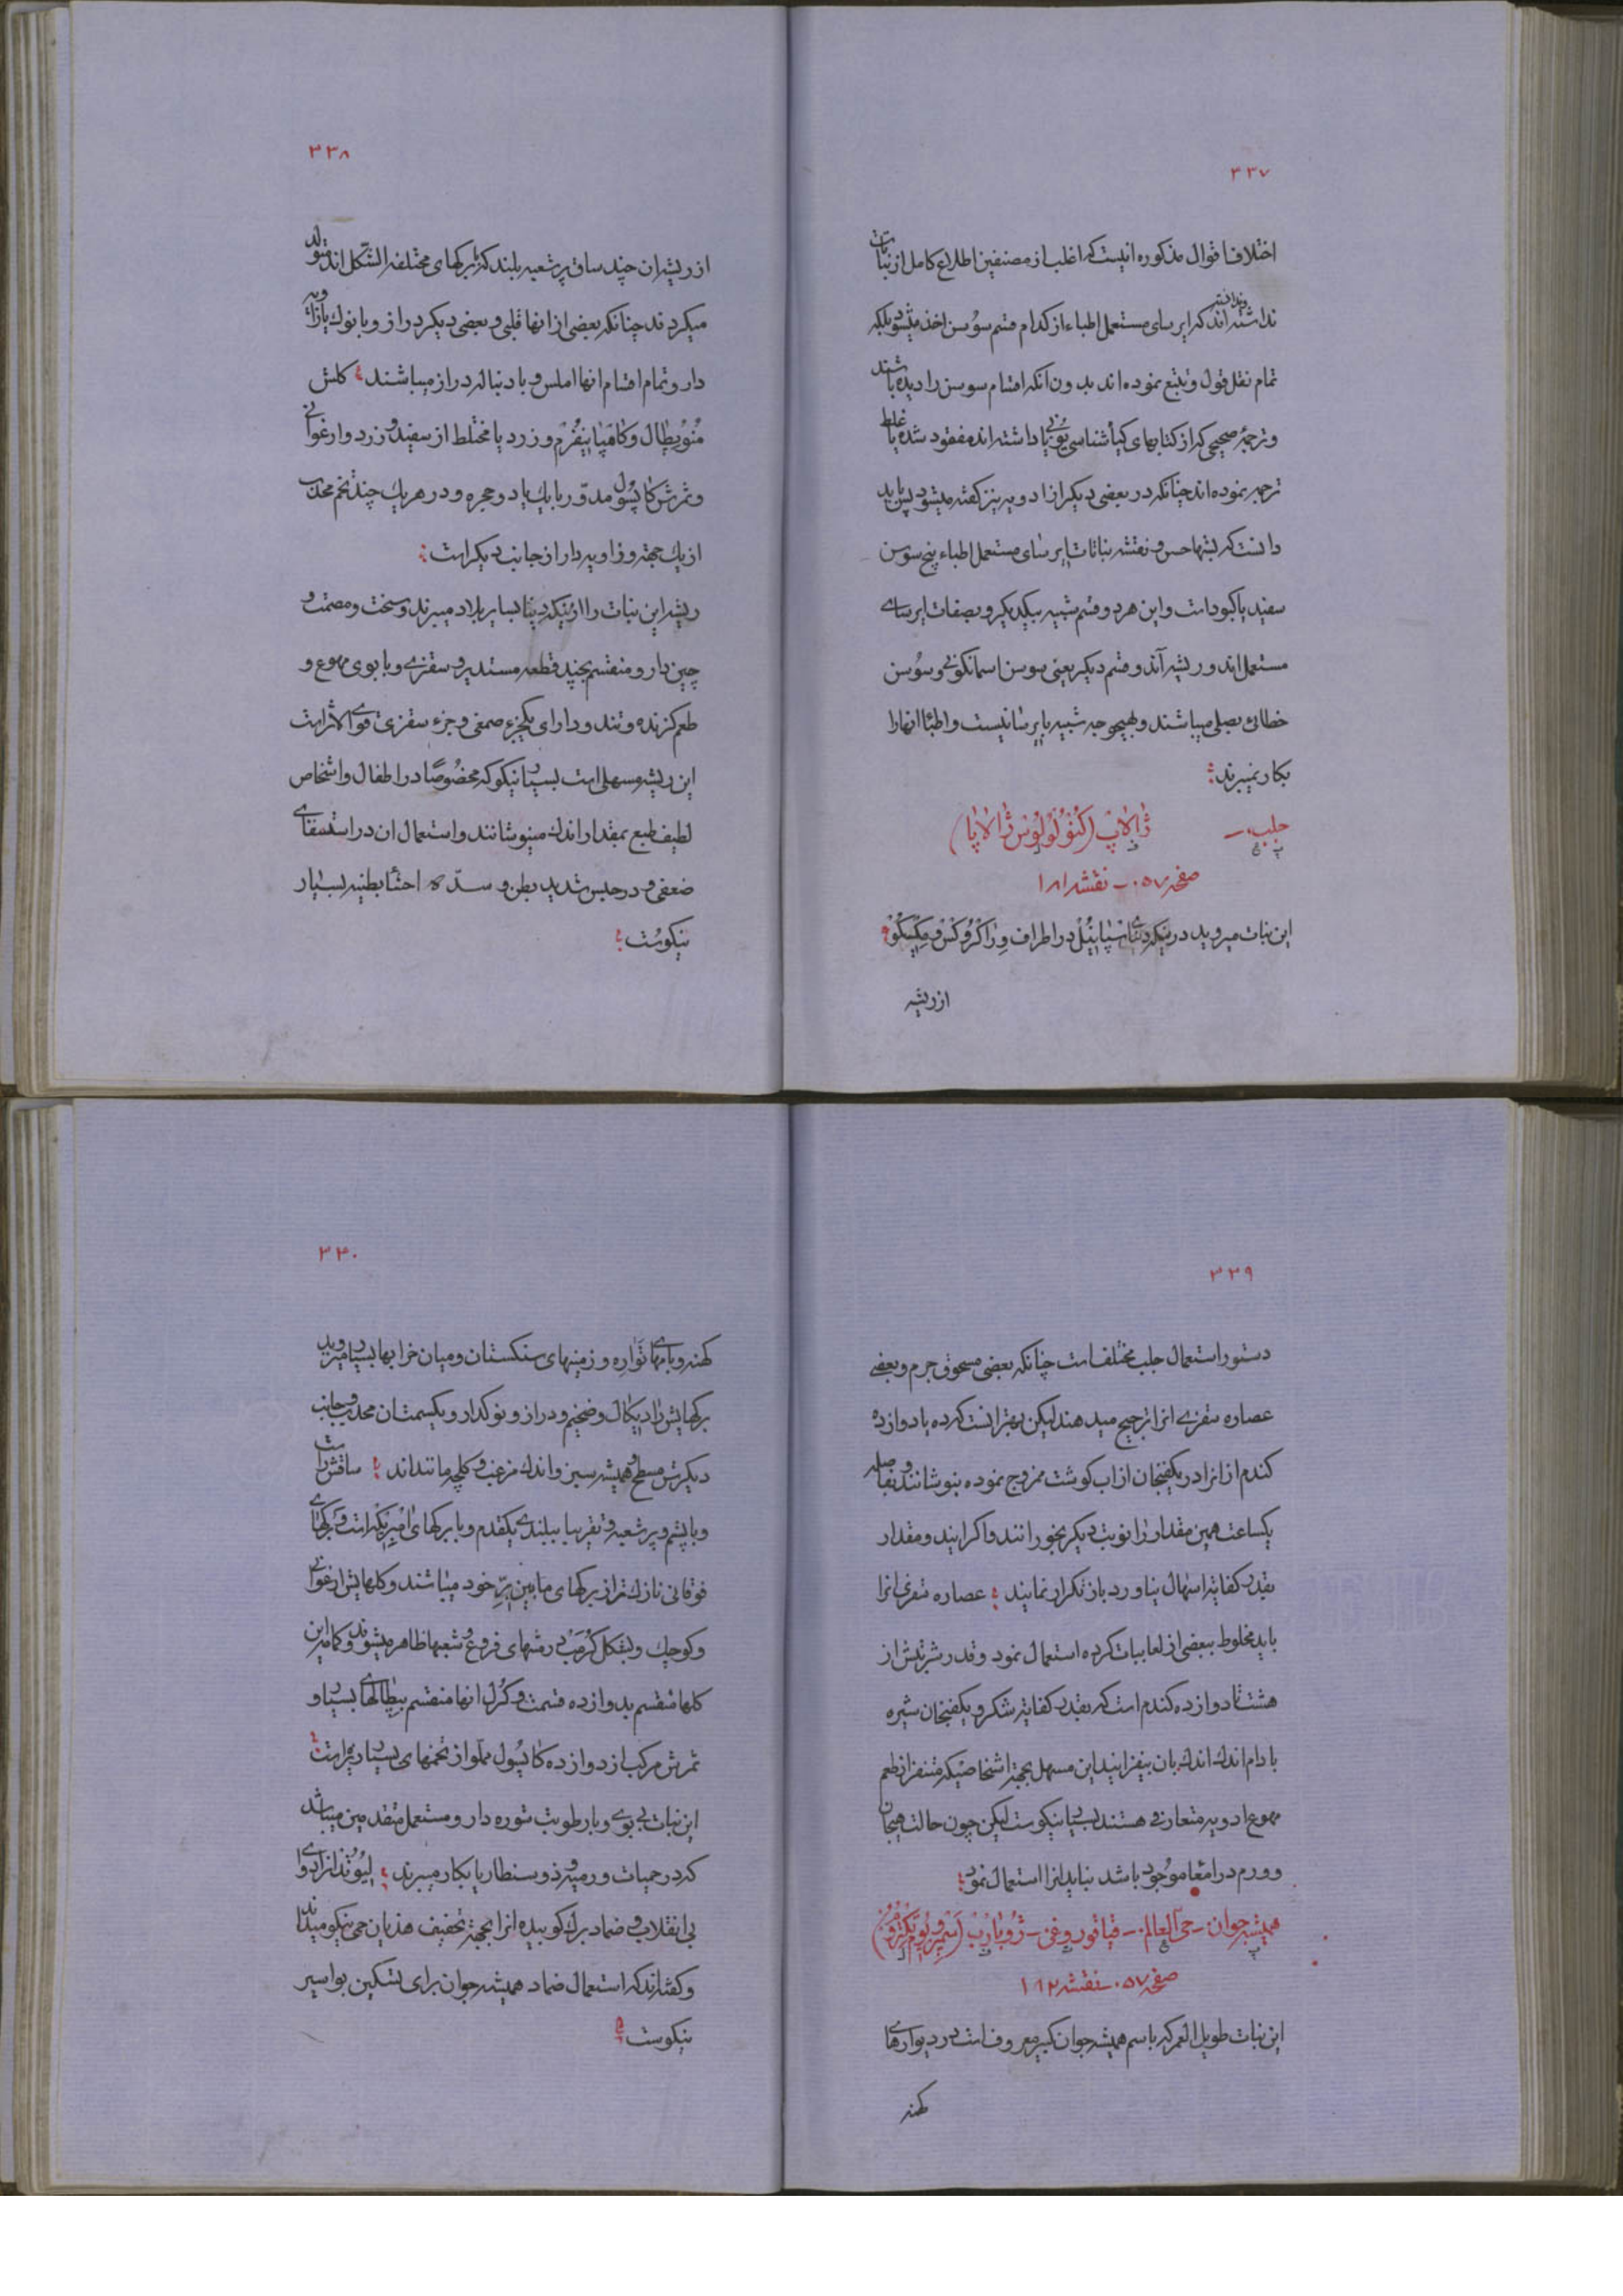 ٣٣٧
اختلاف اقوال مذکوره اینست که اغلب از مصنفین اطلاع کامل از نباتات
نداشته اند که ایرسای مستعمل اطباء از کدام قسم سوُسن اخذ میشود بلکه
تمام نقل قول و تتبع نموده اند بدون آنکه اقسام سوسن را دیده باشند
و ترجمهٔ صحیحی که از کتابهای گیاشناسی یونانی داشته اند مفقود شده یا غلط
ترجمه نموده اند چنانکه در بعضی دیگر از ادویه نیز گفته میشود پس باید
دانست که نقشه نباتات ایرسای مستعمل اطباء بیخ سوسن
سفید یا کبود است و این هر دو قسم شبیه بیکدیگر و بصفات ایرسای
مستعمل اند و ریشه آندو قسم دیگر یعنی سوسن اسمانگونی و سوُسن
خطائی بصلی میباشند و بهیچوجه شبیه بایرسا نیست و اطبّا انها را
بکار نمیبرند
جلب ــ ژالاپ (کُنوُلوُلوُس ژالاپا)
صفحه ٠٥٧ ــ نقشه ١٨١
این نبات میروید در ینکی دنیا در اطراف وِراکرُوُکس و مِکسیکوُ
از ریشه
٣٣٨
از ریشه ان چند ساق پر شعبه بلند که برگهای مختلفه الشّکل اند متولد
میگردند چنانکه بعضی از انها قلبی و بعضی دیگر دراز و با نوک یا زاویه
دار و تمام اقسام انها املس و با دنباله دراز میباشند گلش
مُنوُپطال و کامپانیفُرم و زرد یا مختلط از سفید و زرد و ارغوانی
و ثمرش کاپسوُل مدوّر با یک یا دو حجره و در هر یک چند تخم محدّب
از یک جهة و زاویه دار از جانب دیگر است
ریشه این نبات را از ینکی دنیا بسایر بلاد میبرند و سخت و مصمت و
چین دار و منقسم بچند قطعه مستدیر و سقزی و با بوی مهوع و
طعم گزنده و تند و دارای یکجزء صمغی و جزء سقزی قوی الاثر است
این ریشه مسهلی است بسیار نیکو که مخصُوصًا در اطفال و اشخاص
لطیف طبع بمقدار اندک مینوشانند و استعمال ان در استسقای
ضعفی و در حبس شدید بطن و سدّه احشا بطنیه بسیار
نیکوست
٣٣٩
دستور استعمال جلب مختلف است چنانکه بعضی مسحوق جرم و بعضی
عصاره سقزی انرا ترجیح میدهند لیکن بهتر انست که ده یا دوازده
گندم از انرا در یکفنجان از اب گوشت ممزوج نموده بنوشانند و بفاصله
یکساعت همین مقدار را نوبت دیگر بخورانند و اگر ایندو مقدار
بقدر کفایة اسهال نیاورد باز تکرار نمایند عصاره سقزی انرا
باید مخلوط ببعضی از لعابیات کرده استعمال نمود و قدر شربتش از
هشت تا دوازده گندم است که بقدر کفایة شکر و یکفنجان شیره
بادام اندک اندک بان بیفزایند این مسهل بجهة اشخاصیکه متنفر از طعم
مهوع ادویه متعارفی هستند بسیار نیکوست لیکن چون حالت هیجان
و ورم در امعا موُجود باشد نباید انرا استعمال نمود
همیشه جوان ــ حیّ العالم ــ قیاقوروغی ــ ژوُبارب (سَمپرویوُم تکتوروُم)
صفحه ٠٥٧ ــ نقشه ١٨٢
این نبات طویل العمر که باسم همیشه جوان کبیر معروف است در دیوارهای
کهنه
٣٤٠
کهنه و بامهای و زمینهای سنگستان و میان خرابها بسیار میروید
برگهایش رادیکال و ضخیم و دراز و نوکدار و یکسمتش محدب و جانب
دیگرش مسطح و همیشه سبز و اندک مزغب و کلچه مانند اند ساقش راست
و با پشم و پر شعبه و تقریبا ببلندی یکقدم و با برگهای است و برگهای
فوقانی نازکتر از برگهای مابین خود میباشند و گلهایش ارغوانی
و کوچک و بشکل کُرمب در منتهای فروع و شعبها ظاهر میشوند و کاسه این
گلها منقسم بدوازده قسمت و کُرُل انها منقسم بپطالهای بسیار و
ثمرش مرکب از دوازده کاپسوُل مملو از تخمهای بسیار ریزه است
این نبات بی بوی و با رطوبت شوره دار و مستعمل متقدمین میباشد
که در حمیات ورمیه و ذوسنطاریا بکار میبرند لیوُتد انرا دوای
بی انقلاب و ضماد برگ کوبیده انرا بجهة تخفیف هذیان حمی نیکو میدانند
و گفته اند که استعمال ضماد همیشه جوان برای تسکین بواسیر
نیکوست